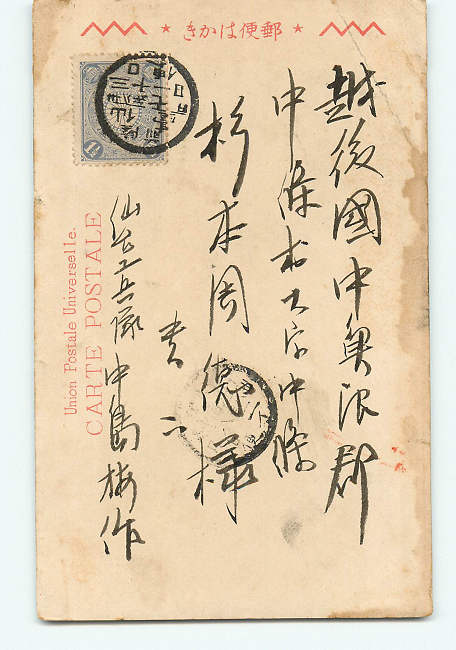 きかは便郵
越後國中魚沼郡
中條村大字中條
杉本周徳様
貴下
仙台工兵隊中島梅作
Union Postale Universelle.
CARTE POSTALE